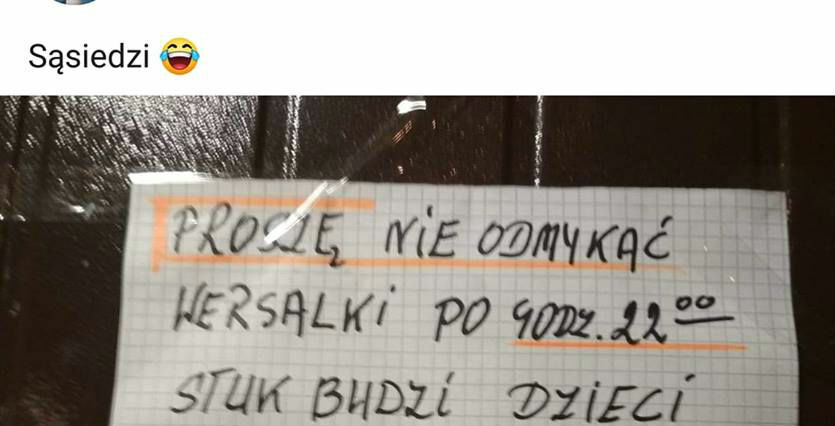 Sąsiedzi 😂
PROSZĘ NIE ODMYKAĆ
WERSALKI PO GODZ. 22⁰⁰
STUK BUDZI DZIECI